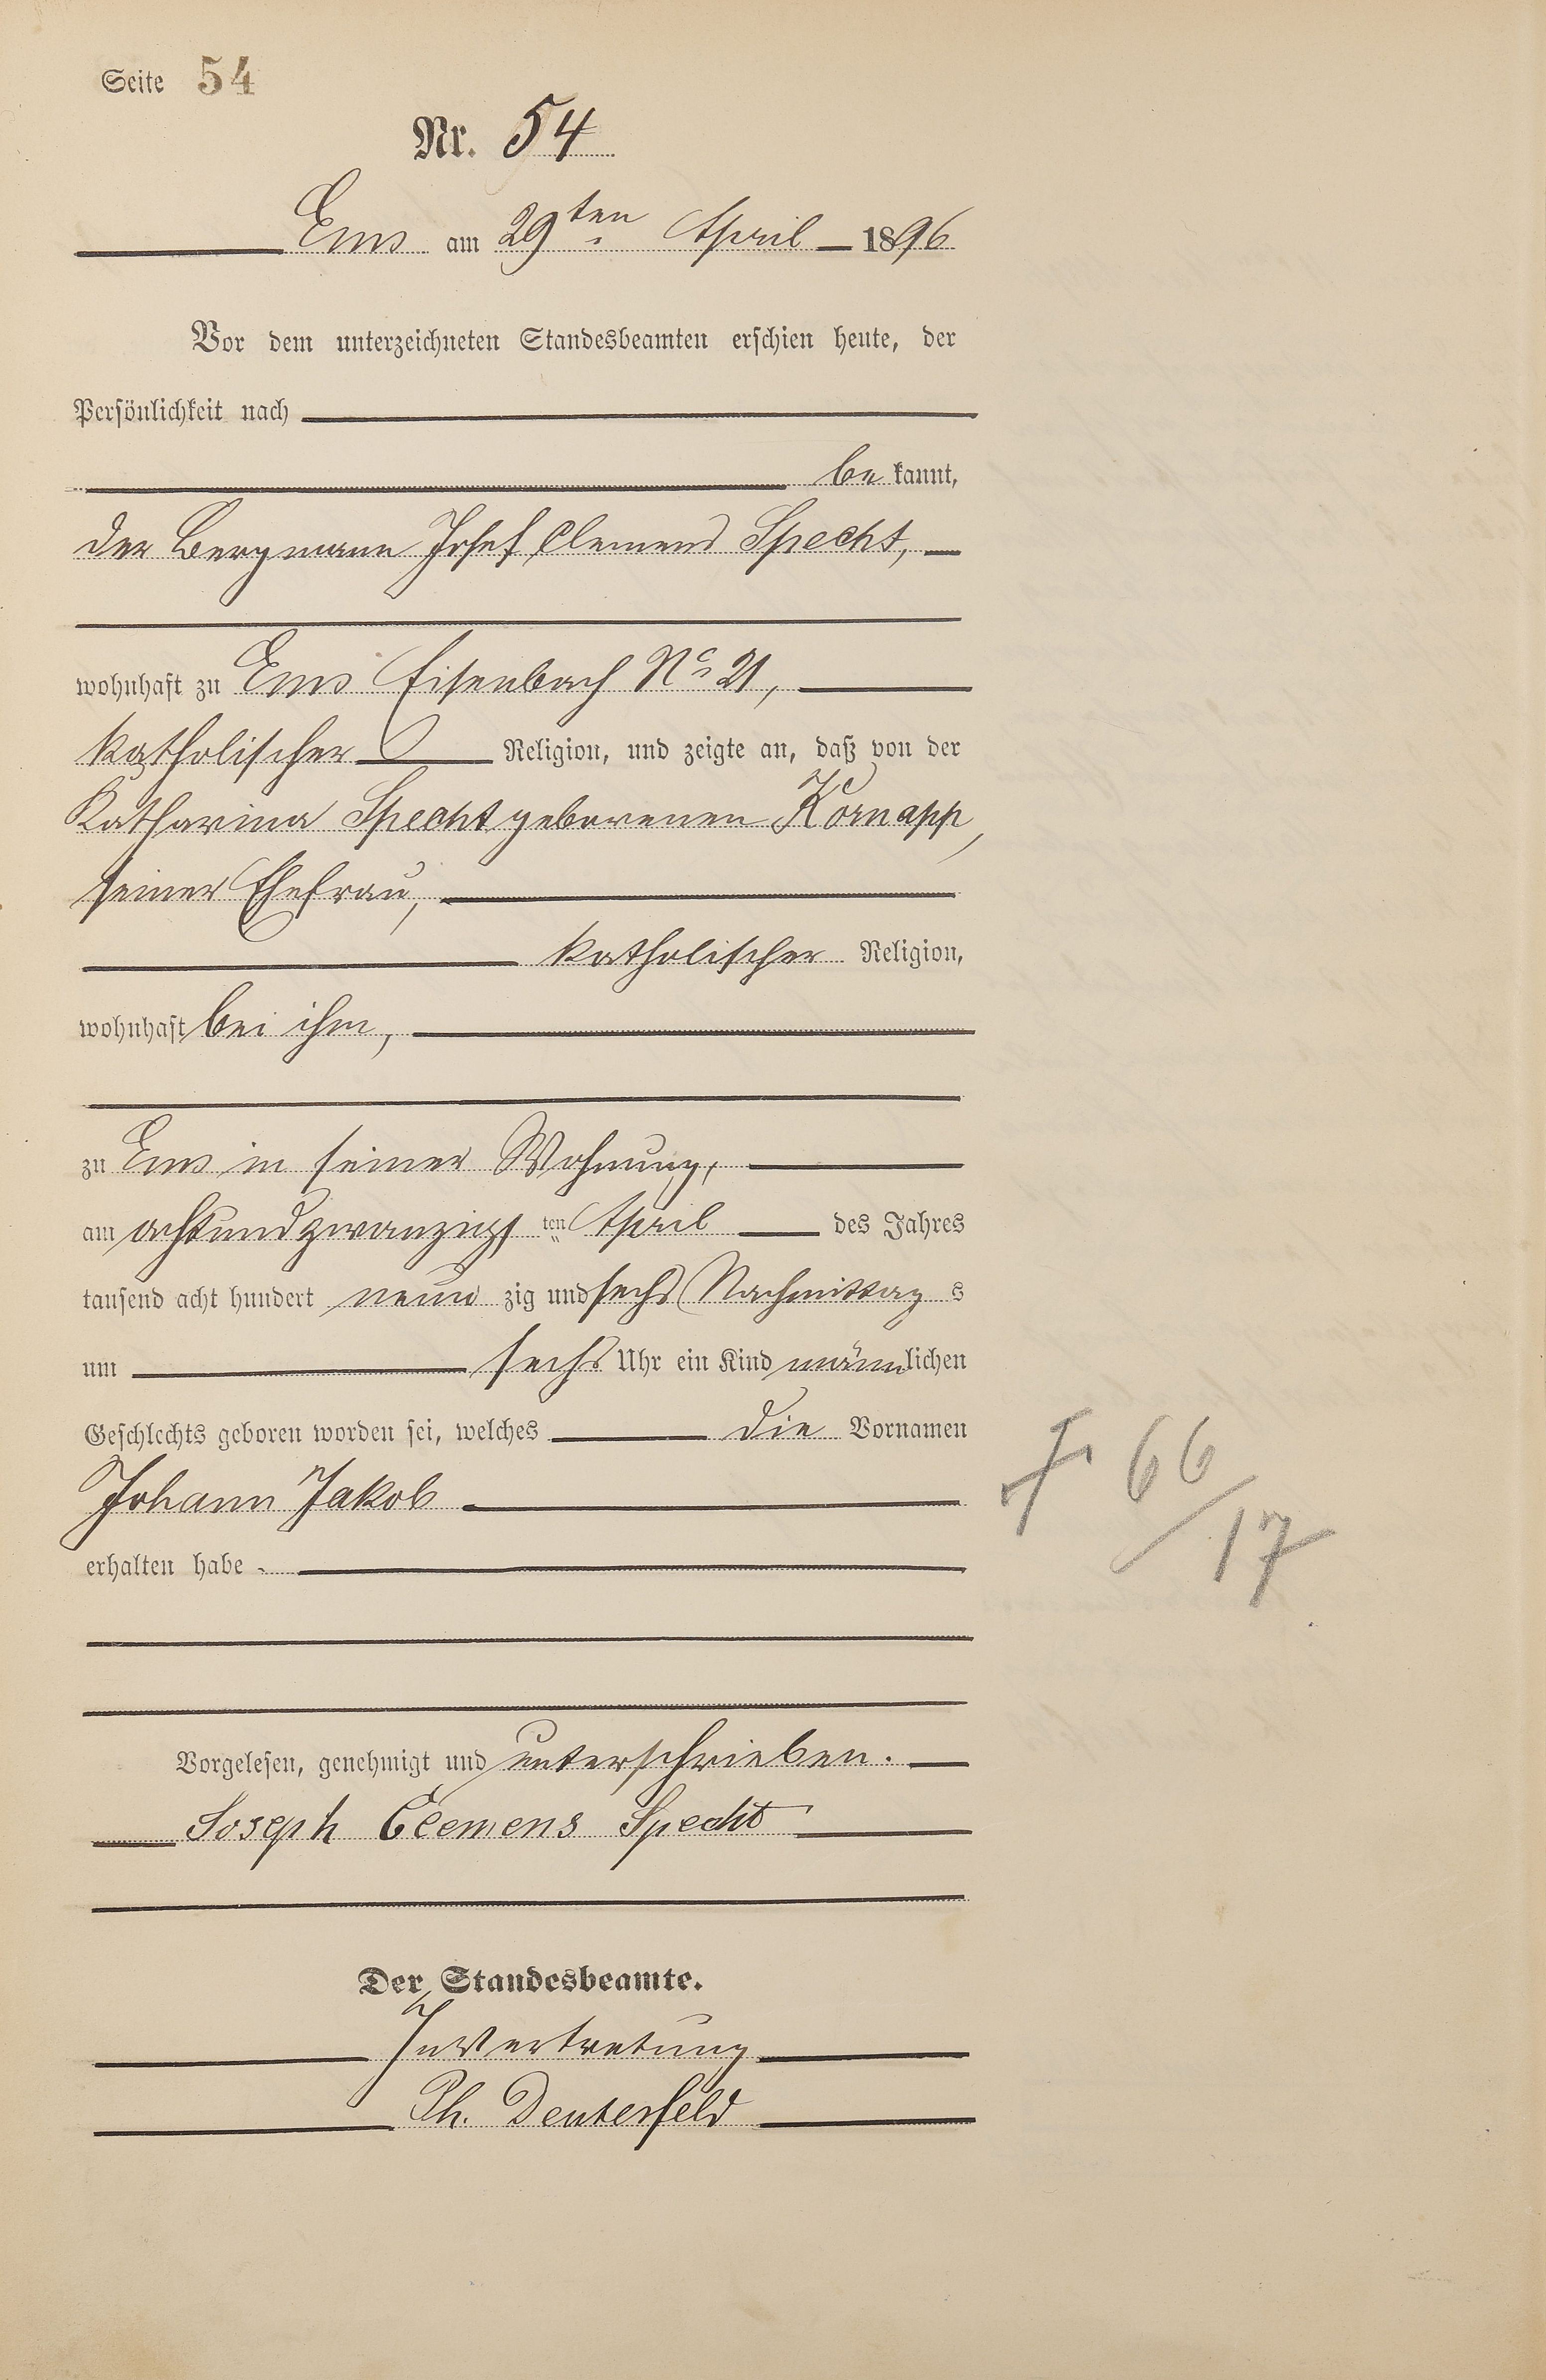 Seite 54
Nr. 54
Ems am 29ten April 1896
Vor dem unterzeichneten Standesbeamten erschien heute, der
Persönlichkeit nach
be kannt,
der Bergmann Josef Clemens Specht,
wohnhaft zu Ems Eisenbach No 21,
katholischer Religion, und zeigte an, daß von der
Katharina Specht geborenen Kornapp,
seiner Ehefrau,
katholischer Religion,
wohnhaft bei ihm,
zu Ems in seiner Wohnung,
am achtundzwanzigs ten April des Jahres
tausend acht hundert neun zig und sechs Nachmittag s
um sechs Uhr ein Kind männlichen
Geschlechts geboren worden sei, welches die Vornamen
Johann Jakob
erhalten habe.
Vorgelesen, genehmigt und unterschrieben.
Joseph Clemens Specht
Der Standesbeamte.
In Vertretung
Ph. Deuterfeld
66/17